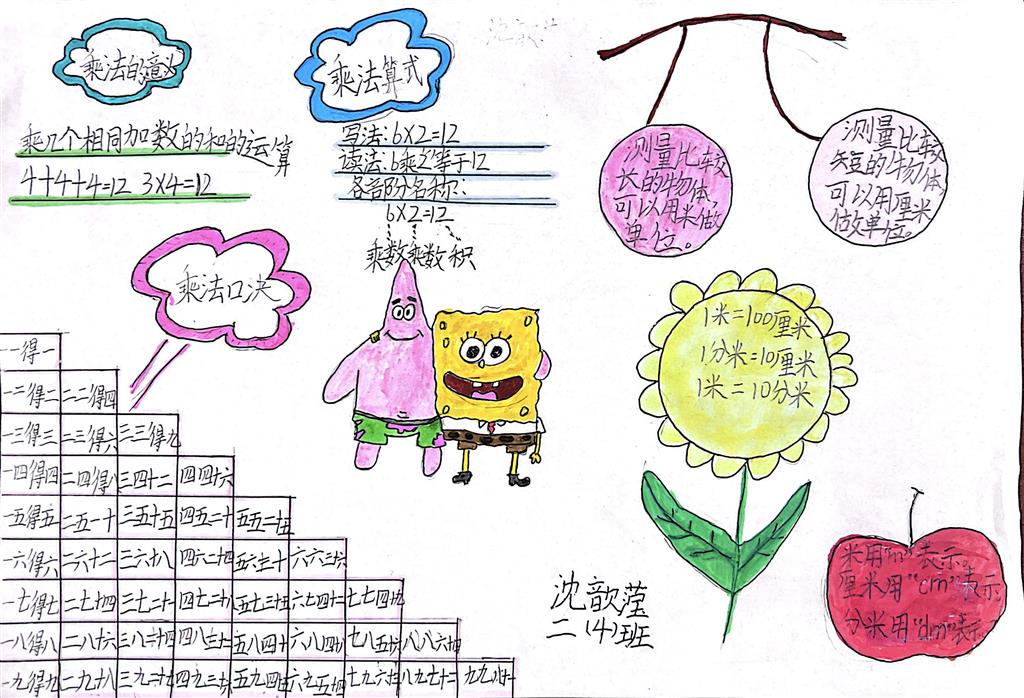 乘法的意义
乘几个相同加数的和的运算
4+4+4=12 3×4=12
乘法算式
写法:6×2=12
读法:6乘2等于12
各部分名称:
6×2=12
乘数乘数积
测量比较
长的物体,
可以用米做
单位。
测量比较
矢豆的物体,
可以用厘米
做单位。
乘法口决
一一得一
一二得二 二二得四
一三得三 二三得六 三三得九
一四得四 二四得八 三四十二 四四十六
一五得五 二五一十 三五十五 四五二十 五五二十五
一六得六 二六十二 三六十八 四六二十四 五六三十 六六三十六
一七得七 二七十四 三七二十一 四七二十八 五七三十五 六七四十二 七七四十九
一八得八 二八十六 三八二十四 四八三十二 五八四十 六八四十八 七八五十六 八八六十四
一九得九 二九十八 三九二十七 四九三十六 五九四十五 六九五十四 七九六十三 八九七十二 九九八十一
1米=100厘米
1分米=10厘米
1米=10分米
沈歆滢
二(4)班
米用"m"表示。
厘米用"cm"表示
分米用"dm"表示